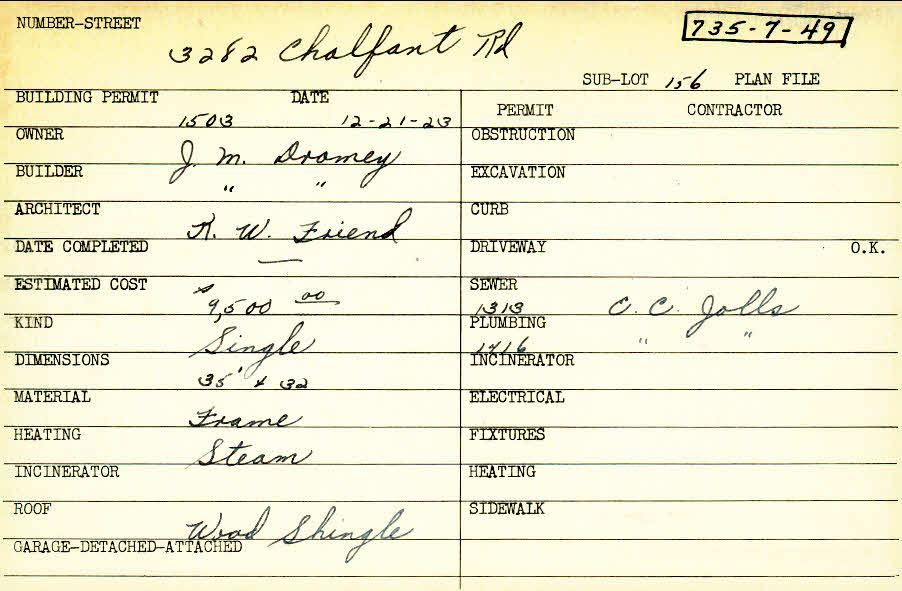 NUMBER-STREET
3282 Chalfant Rd
735-7-49
SUB-LOT 156 PLAN FILE
BUILDING PERMIT DATE
1503 12-21-23
PERMIT CONTRACTOR
OWNER J. M. Dromey
OBSTRUCTION
BUILDER " "
EXCAVATION
ARCHITECT R. W. Friend
CURB
DATE COMPLETED —
DRIVEWAY O.K.
ESTIMATED COST $ 9,500 00
SEWER 1313 C. C. Jolls
KIND Single
PLUMBING 1716 " "
DIMENSIONS 35' x 32
INCINERATOR
MATERIAL Frame
ELECTRICAL
HEATING Steam
FIXTURES
INCINERATOR
HEATING
ROOF Wood Shingle
SIDEWALK
GARAGE-DETACHED-ATTACHED